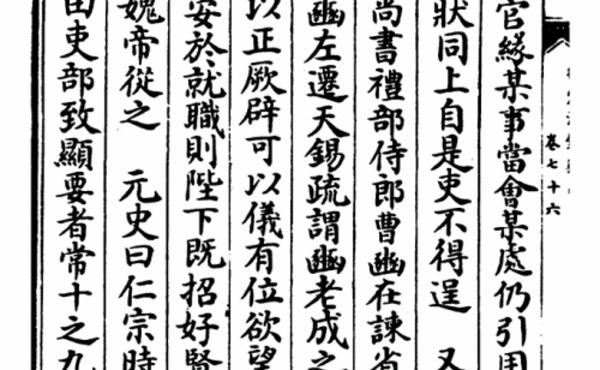 卷七十六
官緣某事當會某處仍引用
狀同上自是吏不得逞 又
尚書禮部侍郎曹豳在諫省
豳左遷天錫疏謂豳老成之
以正厥辟可以儀有位欲望
安於就職則陛下既招好賢
媿帝從之 元史曰仁宗時
由吏部致顯要者常十之九